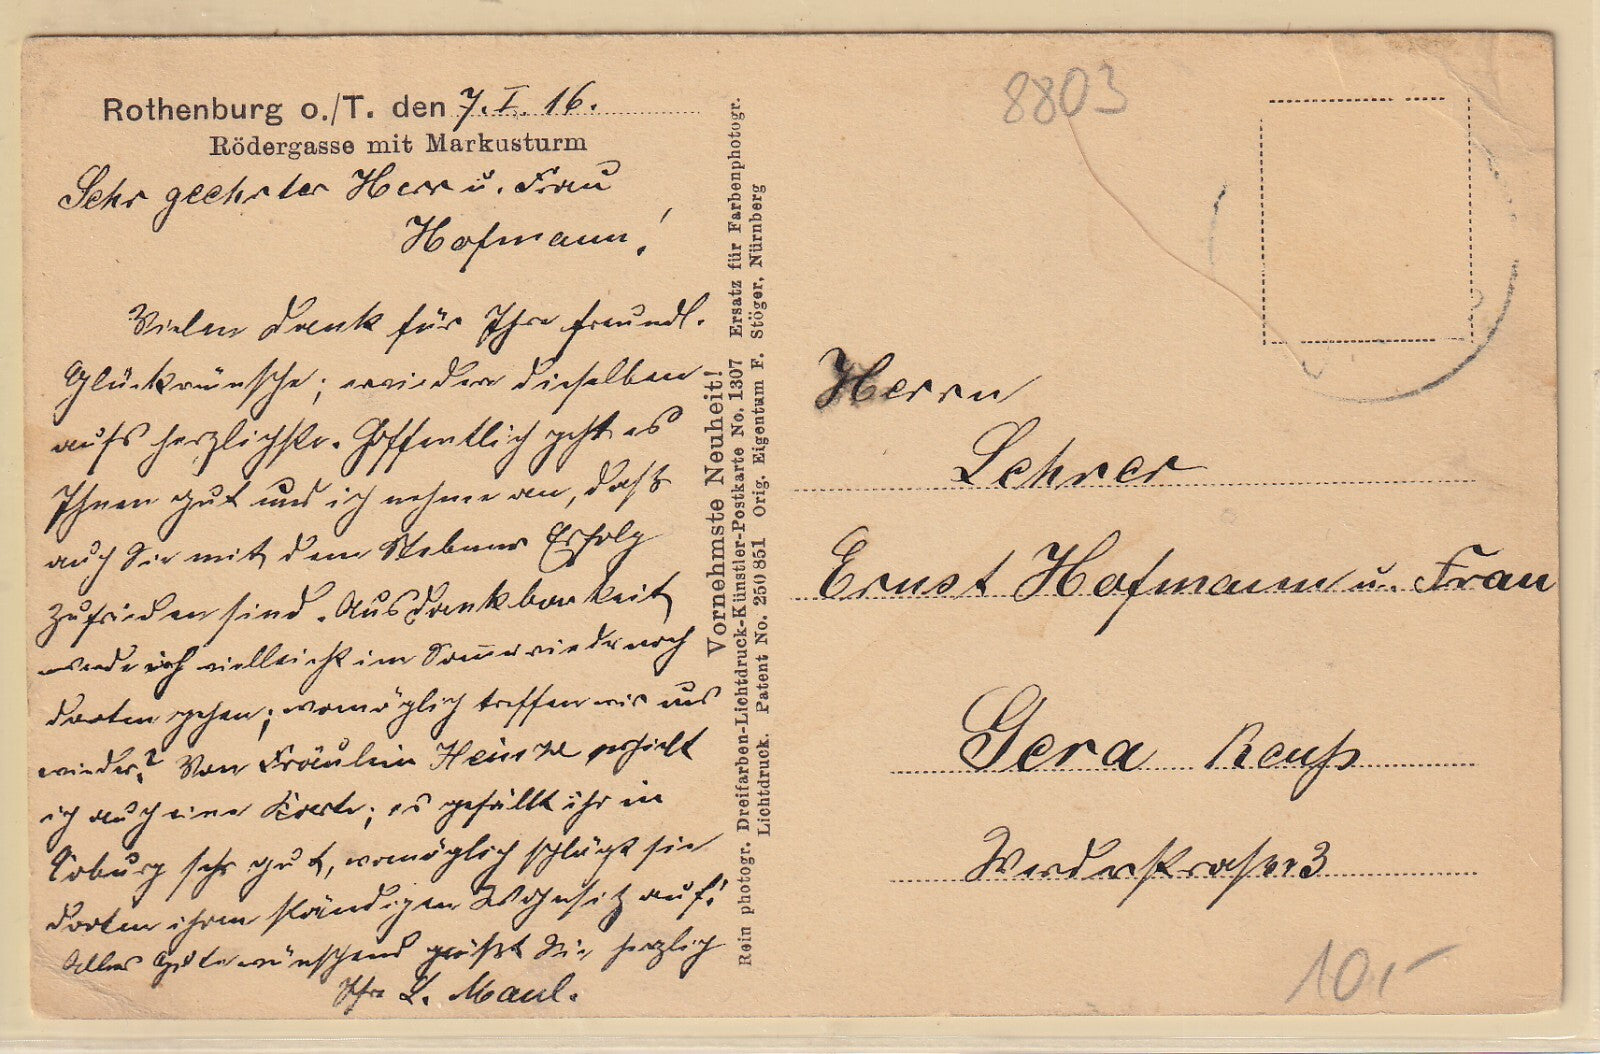 Rothenburg o./T. den 7. I. 16.
Rödergasse mit Markusturm
Sehr geehrter Herr u. Frau
Hofmann!
Vielen Dank für Ihre freundl.
Glückwünsche; erwiedere dieselben
aufs herzlichste. Hoffentlich geht es
Ihnen gut und ich nehme an, daß
auch Sie mit dem Stebener Erfolg
zufrieden sind. Aus Dankbarkeit
werde ich vielleicht im Sommer wieder nach
dorten gehen; womöglich treffen wir uns
wieder? Von Fräulein erhielt
ich auch eine Karte; es gefällt ihr in
Coburg sehr gut, womöglich schlägt sie
dorten ihren ständigen Wohnsitz auf!
Alles Gute wünschend grüßt Sie herzlich
Ihre L. Maul.
Vornehmste Neuheit!
Rein photogr. Dreifarben-Lichtdruck-Künstler-Postkarte No. 1307 Ersatz für Farbenphotogr.
Lichtdruck. Patent No. 250 851 Orig. Eigentum F. Stöger, Nürnberg
8803
Herrn
Lehrer
Ernst Hofmann u. Frau
Gera Reuß
Werderstraße 3
10,-